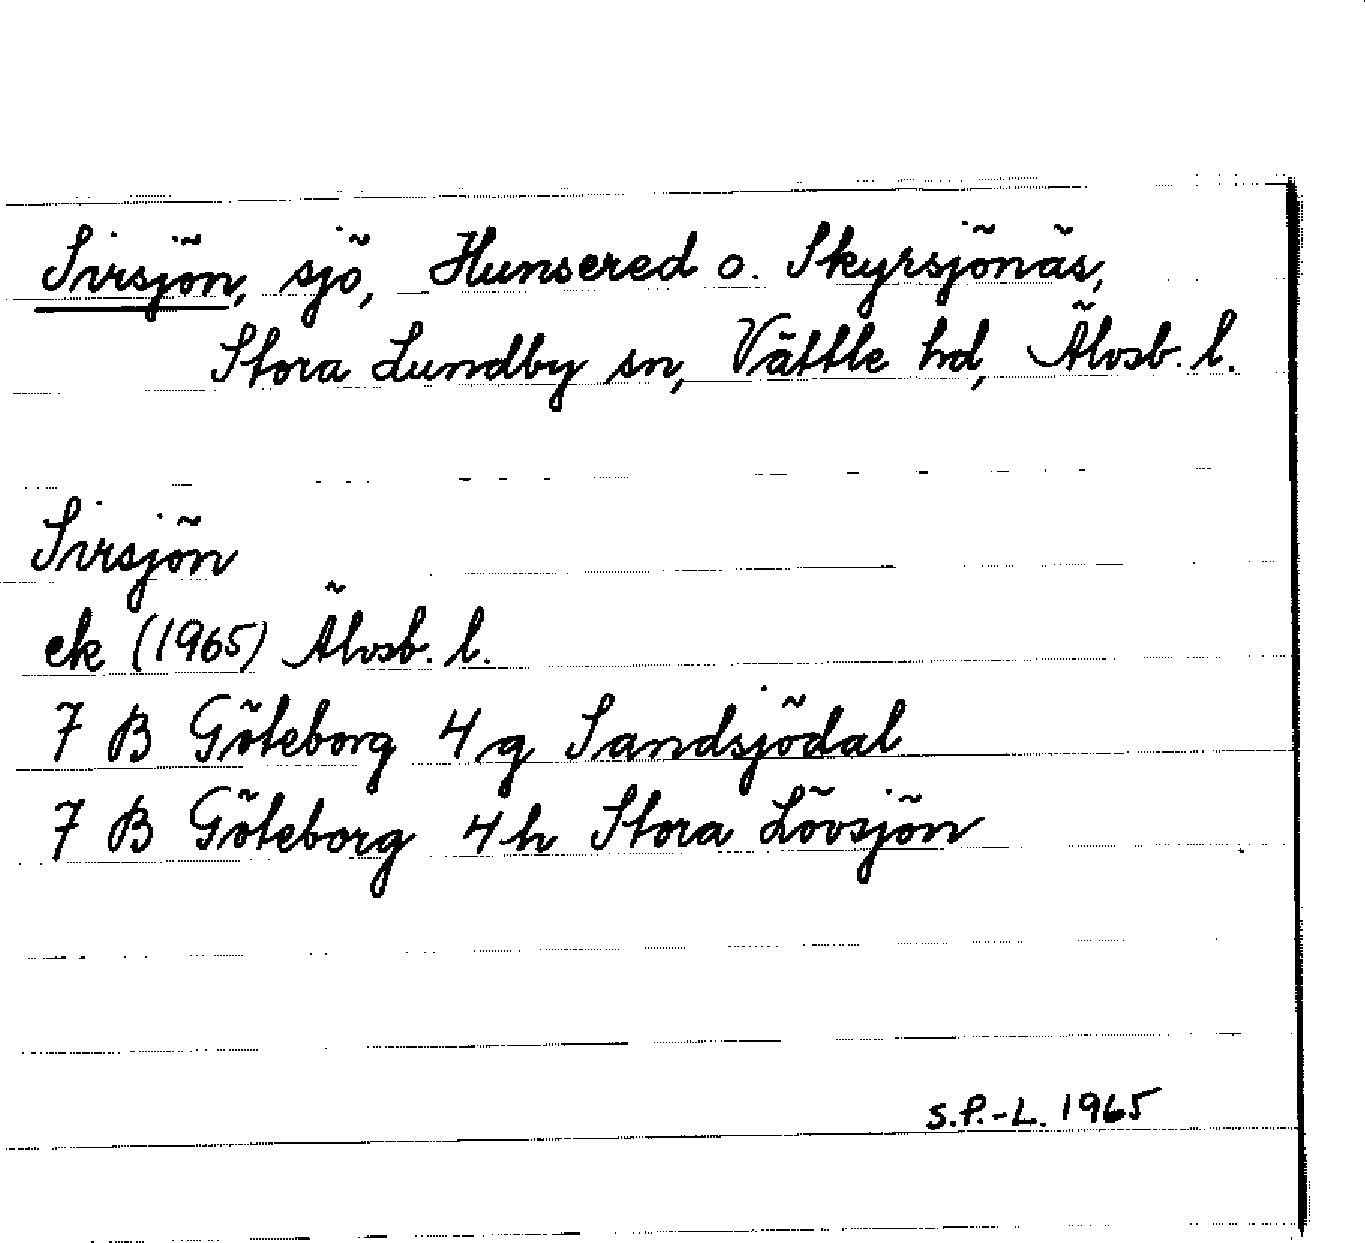 Sirsjön, sjö, Hunsered o. Skyrsjönäs,
Stora Lundby sn, Vättle hd, Älvsb. l.
Sirsjön
ek (1965) Älvsb. l.
7 B Göteborg 4 g Sandsjödal
7 B Göteborg 4 h Stora Lövsjön
S.P.-L. 1965